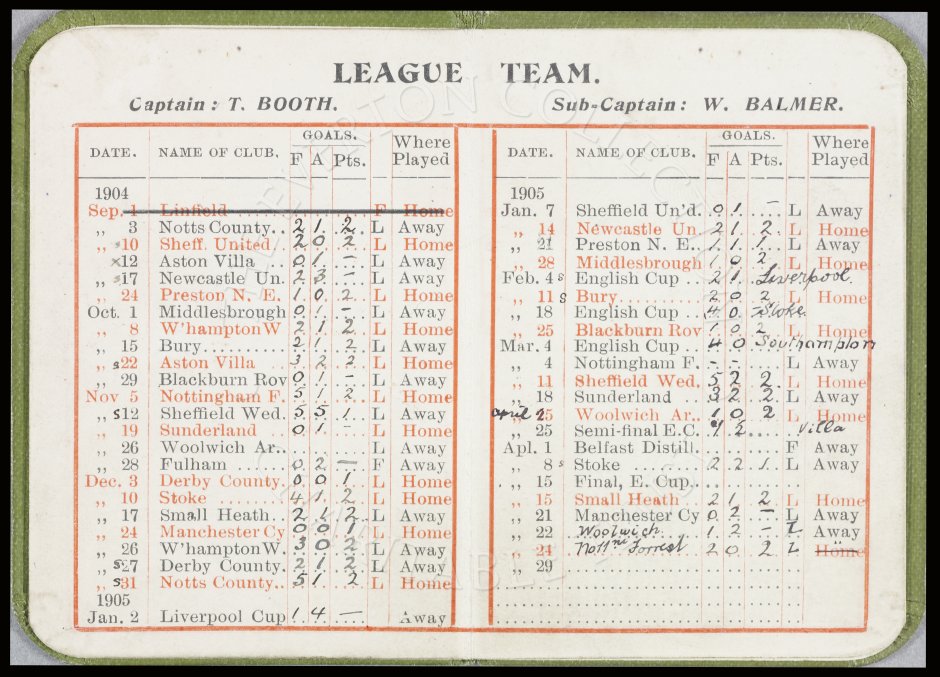 LEAGUE TEAM.
Captain: T. BOOTH. Sub-Captain: W. BALMER.
DATE. NAME OF CLUB. GOALS. F A Pts. Where Played
1904
Sep. 1 Linfield F Home
„ 3 Notts County.. 2 1 2 L Away
„ s10 Sheff. United.. 2 0 2 L Home
x12 Aston Villa .. 0 1 – L Away
„ s17 Newcastle Un. 2 3 – L Away
„ 24 Preston N. E. 1 0 2 L Home
Oct. 1 Middlesbrough 0 1 – L Away
„ 8 W'hampton W 2 1 2 L Home
„ 15 Bury 2 1 2 L Away
„ s22 Aston Villa 3 2 2 L Home
„ 29 Blackburn Rov 0 1 – L Away
Nov 5 Nottingham F. 5 1 2 L Home
„ s12 Sheffield Wed. 5 5 1 L Away
„ 19 Sunderland 0 1 – L Home
„ 26 Woolwich Ar.. L Away
„ 28 Fulham 0 2 – F Away
Dec. 3 Derby County. 0 0 1 L Home
„ 10 Stoke 4 1 2 L Home
„ 17 Small Heath.. 2 1 2 L Away
„ 24 Manchester Cy 0 0 1 L Home
„ 26 W'hampton W. 3 0 2 L Away
„ s27 Derby County. 2 1 2 L Away
„ s31 Notts County.. 5 1 2 L Home
1905
Jan. 2 Liverpool Cup 1 4 – Away
DATE. NAME OF CLUB. GOALS. F A Pts. Where Played
1905
Jan. 7 Sheffield Un'd. 0 1 – L Away
„ 14 Newcastle Un 2 1 2 L Home
„ 21 Preston N. E.. 1 1 1 L Away
„ 28 Middlesbrough 1 0 2 L Home
Feb. 4 s English Cup .. 2 1 Liverpool
„ 11 s Bury 2 0 2 L Home
„ 18 English Cup .. 4 0 – Stoke
„ 25 Blackburn Rov 1 0 2 L Home
Mar. 4 English Cup .. 4 0 Southampton
„ 4 Nottingham F. – – L Away
„ 11 Sheffield Wed. 5 2 2 L Home
„ 18 Sunderland .. 3 2 2 L Away
april 25 Woolwich Ar.. 1 0 2 L Home
„ 25 Semi-final E.C. 2 Villa
Apl. 1 Belfast Distill. F Away
„ 8 s Stoke 2 2 1 L Away
„ 15 Final, E. Cup..
15 Small Heath .. 2 1 2 L Home
„ 21 Manchester Cy 0 2 – L Away
„ 22 Woolwich 1 2 – L Away
„ 24 Nottm Forrest 2 0 2 L Home
„ 29
EVERTON COLLECTION